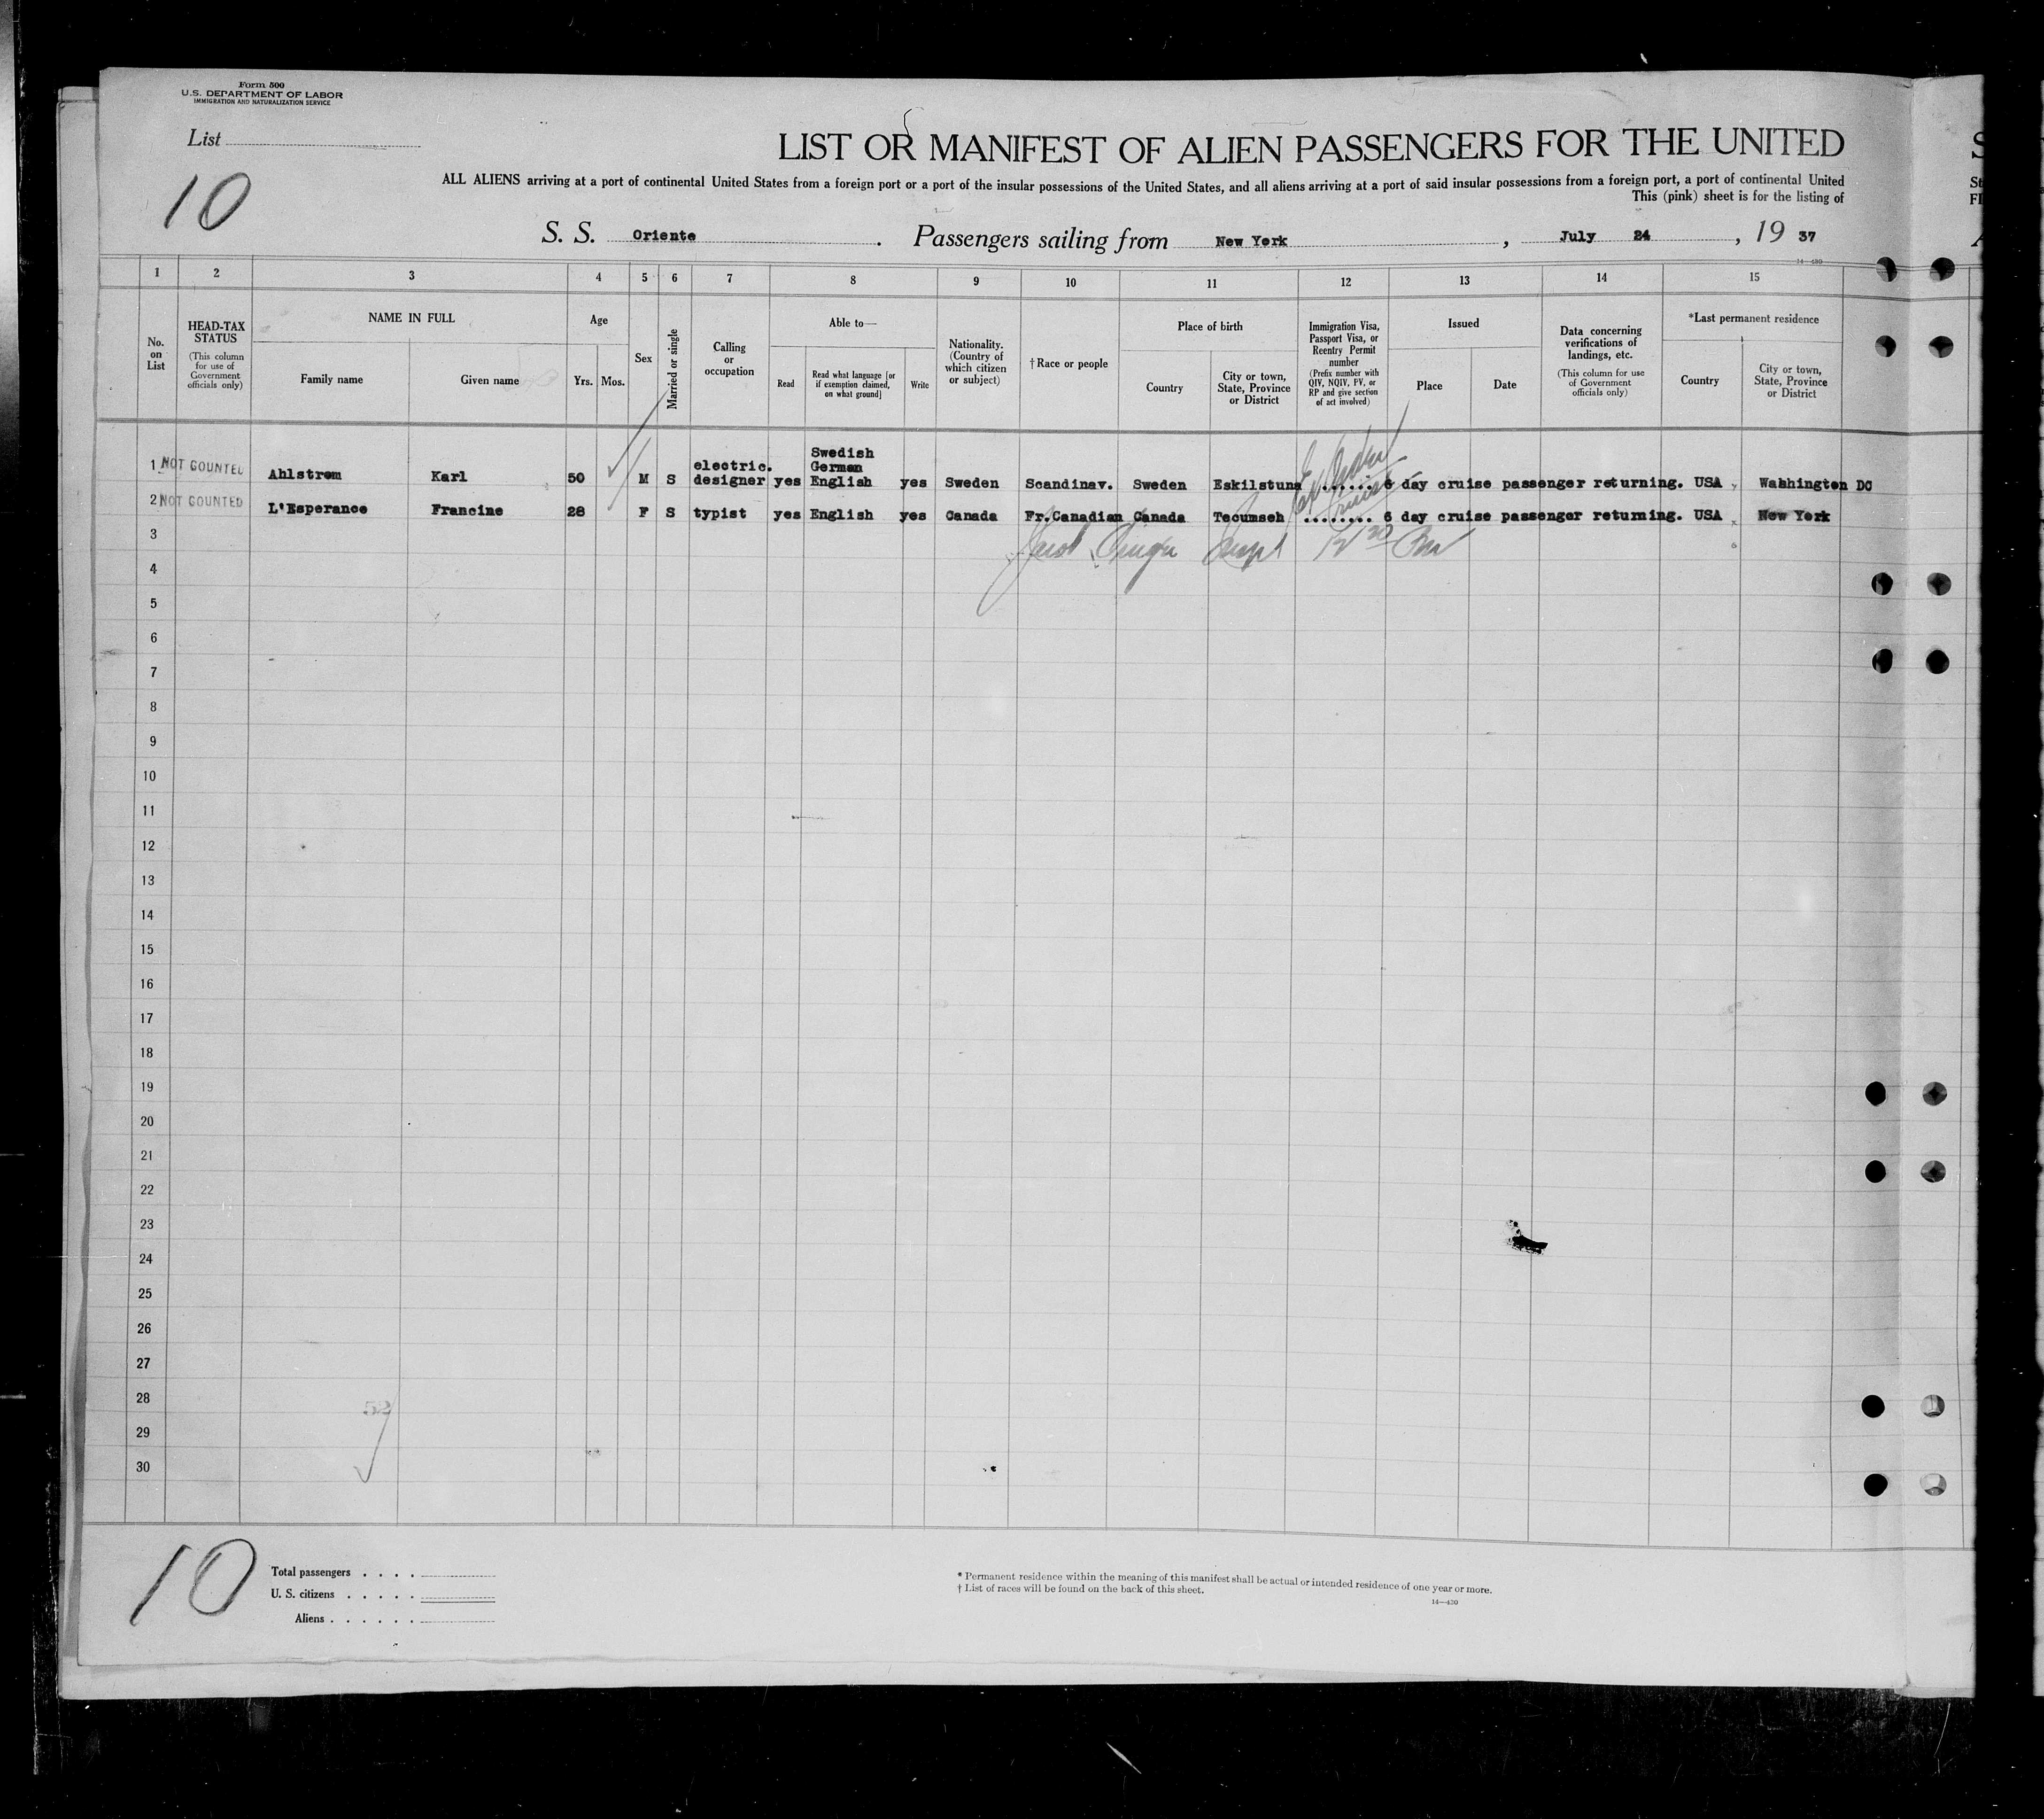 Form 500
U.S. DEPARTMENT OF LABOR
IMMIGRATION AND NATURALIZATION SERVICE
List
10
LIST OR MANIFEST OF ALIEN PASSENGERS FOR THE UNITED
ALL ALIENS arriving at a port of continental United States from a foreign port or a port of the insular possessions of the United States, and all aliens arriving at a port of said insular possessions from a foreign port, a port of continental United
This (pink) sheet is for the listing of
S. S. Oriente. Passengers sailing from New York, July 24, 19 37
14—430
1 2 3 4 5 6 7 8 9 10 11 12 13 14 15
No. on List
HEAD-TAX STATUS
(This column for use of Government officials only)
NAME IN FULL
Family name
Given name
Age
Yrs. Mos.
Sex
Married or single
Calling or occupation
Able to—
Read
Read what language [or if exemption claimed, on what ground]
Write
Nationality. (Country of which citizen or subject)
†Race or people
Place of birth
Country
City or town, State, Province or District
Immigration Visa, Passport Visa, or Reentry Permit number
(Prefix number with QIV, NQIV, PV, or RP and give section of act involved)
Issued
Place
Date
Data concerning verifications of landings, etc.
(This column for use of Government officials only)
*Last permanent residence
Country
City or town, State, Province or District
1 NOT COUNTED Ahlstrom Karl 50 M S electric. designer yes Swedish German English yes Sweden Scandinav. Sweden Eskilstuna ........ 6 day cruise passenger returning. USA Wahhington DC
2 NOT COUNTED L'Esperance Francine 28 F S typist yes English yes Canada Fr.Canadian Canada Tecumseh ........ 6 day cruise passenger returning. USA New York
3
4
5
6
7
8
9
10
11
12
13
14
15
16
17
18
19
20
21
22
23
24
25
26
27
28
29
30
10
Total passengers . . . .
U. S. citizens . . . . .
Aliens . . . . . .
* Permanent residence within the meaning of this manifest shall be actual or intended residence of one year or more.
† List of races will be found on the back of this sheet.
14—430